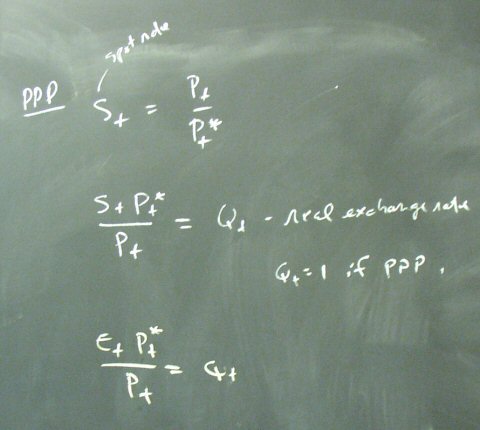 spot rate
PPP S_t = P_t / P_t*
S_t P_t* / P_t = Q_t - real exchange rate
Q_t = 1 if PPP.
E_t P_t* / P_t = Q_t